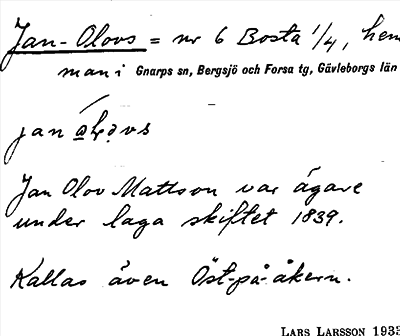 Jan-Olovs = nr 6 Bosta 1/4, hem
man i Gnarps sn, Bergsjö och Forsa tg, Gävleborgs län
Jan Olov Mattson var ägare
under laga skiftet 1839.
Kallas även Öst-på-åkern.
LARS LARSSON 1933